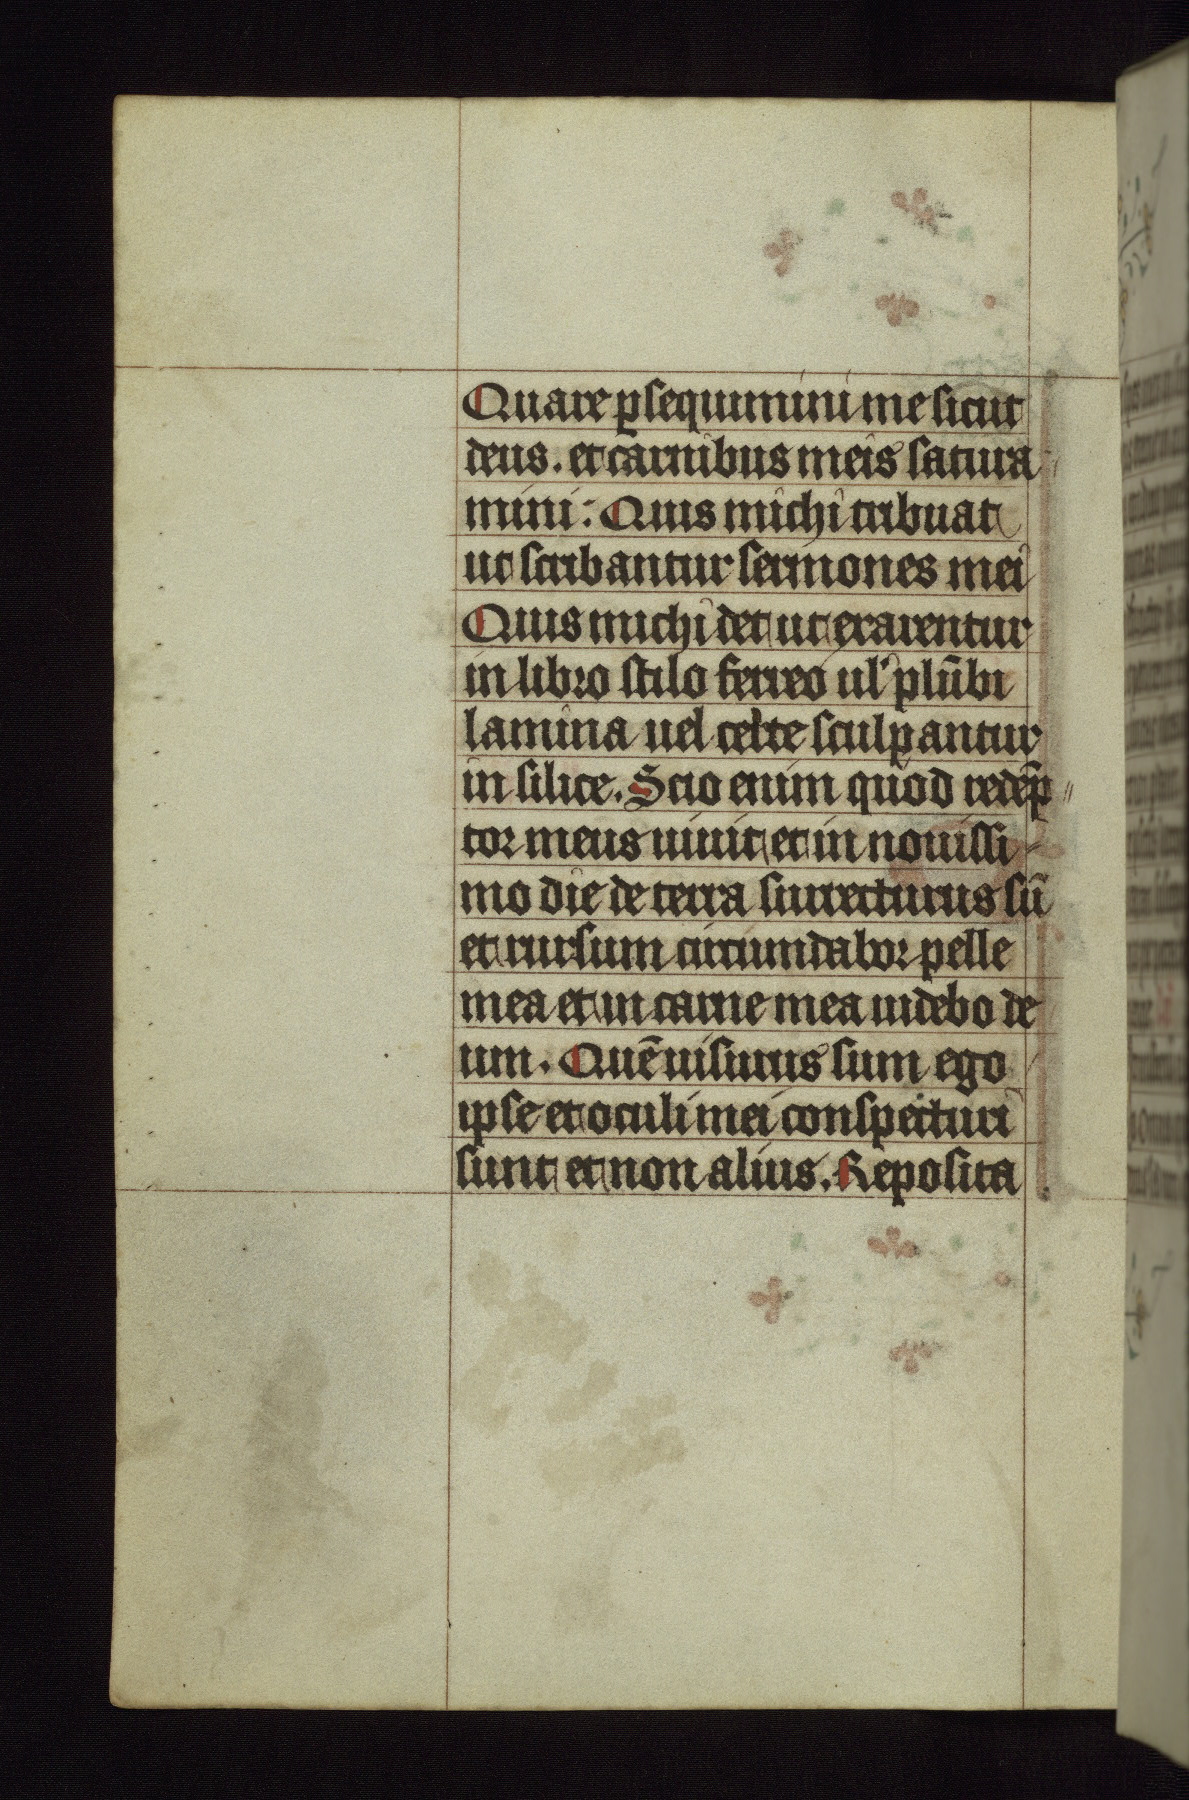 Quare ꝑsequimini me sicut
deus. et carnibus meis satura
mini: Quis michi tribuat
ut scribantur sermones mei
Quis michi det ut exarentur
in libro stilo ferreo ul' plūbi
lamina uel celte sculpantur
in silice. Scio enim quod redēp
tor meus uiuit et in nouissi
mo die de terra surrecturus sū
et rursum circumdabor pelle
mea et in carne mea uidebo de
um. Quē uisurus sum ego
ipse et oculi mei conspecturi
sunt et non alius. Reposita